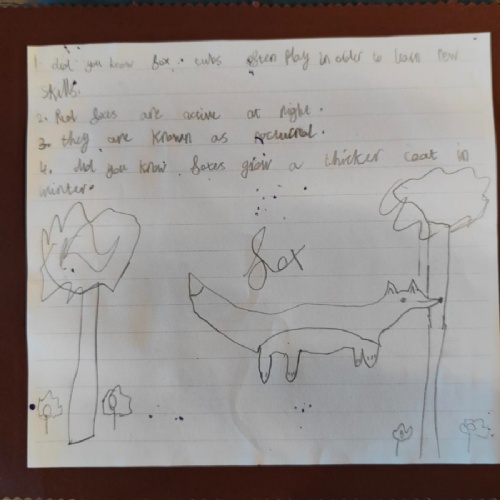 1. did you know fox cubs often play in order to learn new
skills.
2. Red foxes are active at night.
3. they are known as nocturnal.
4. did you know foxes grow a thicker coat in
winter.
fox